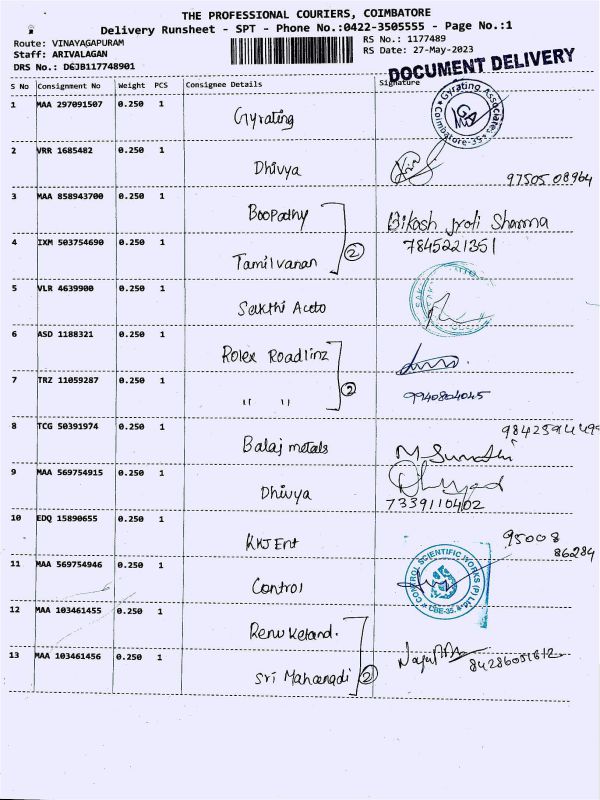 THE PROFESSIONAL COURIERS, COIMBATORE
Delivery Runsheet - SPT - Phone No.:0422-3505555 - Page No.:1
Route: VINAYAGAPURAM
Staff: ARIVALAGAN
DRS No.: D6JB117748901
RS No.: 1177489
RS Date: 27-May-2023
DOCUMENT DELIVERY
S No Consignment No Weight PCS Consignee Details Signature
1 MAA 297091507 0.250 1 Gyrating
Gyrating Associates
Coimbatore-35
2 VRR 1685482 0.250 1 Dhivya
9750508964
3 MAA 858943700 0.250 1 Boopathy Bikash Jyoti Sharma
7845221351
4 IXM 503754690 0.250 1 Tamilvanan 2
5 VLR 4639900 0.250 1 Sakthi Aceto
6 ASD 1188321 0.250 1 Rolex Roadlinz
7 TRZ 11059287 0.250 1 " " 2
9940804045
8 TCG 50391974 0.250 1 Balaj metals M Sumathi
9 MAA 569754915 0.250 1 Dhivya
7339110402
10 EDQ 15890655 0.250 1 KKJ Ent 95008
86284
11 MAA 569754946 0.250 1 Control
CONTROL SCIENTIFIC WORKS (P) Ltd
CBE-35
12 MAA 103461455 0.250 1 Renu Keland.
13 MAA 103461456 0.250 1 Sri Mahaanadi 2